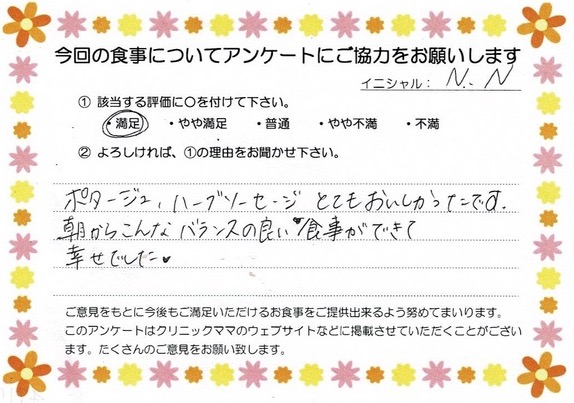 今回の食事についてアンケートにご協力をお願いします
イニシャル： N. N
① 該当する評価に○を付けて下さい。
・満足 ・やや満足 ・普通 ・やや不満 ・不満
② よろしければ、①の理由をお聞かせ下さい。
ポタージュ、ハーブソーセージ とてもおいしかったです。
朝からこんな バランスの良い♥食事ができて
幸せでした♥
ご意見をもとに今後もご満足いただけるお食事をご提供出来るよう努めてまいります。
このアンケートはクリニックママのウェブサイトなどに掲載させていただくことがござい
ます。たくさんのご意見をお願い致します。